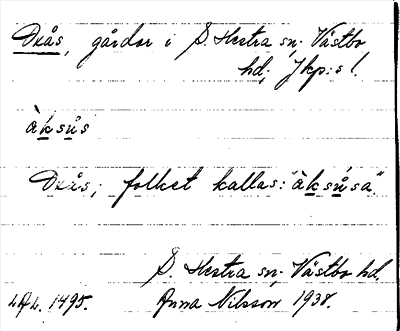 Oxås, gårdar i S. Hestra sn; Västbo
hd; Jkp:s l.
àksås
Oxås; folket kallas: "àksåsa".
S. Hestra sn, Västbo hd.
Anna Nilsson 1938.
1495.